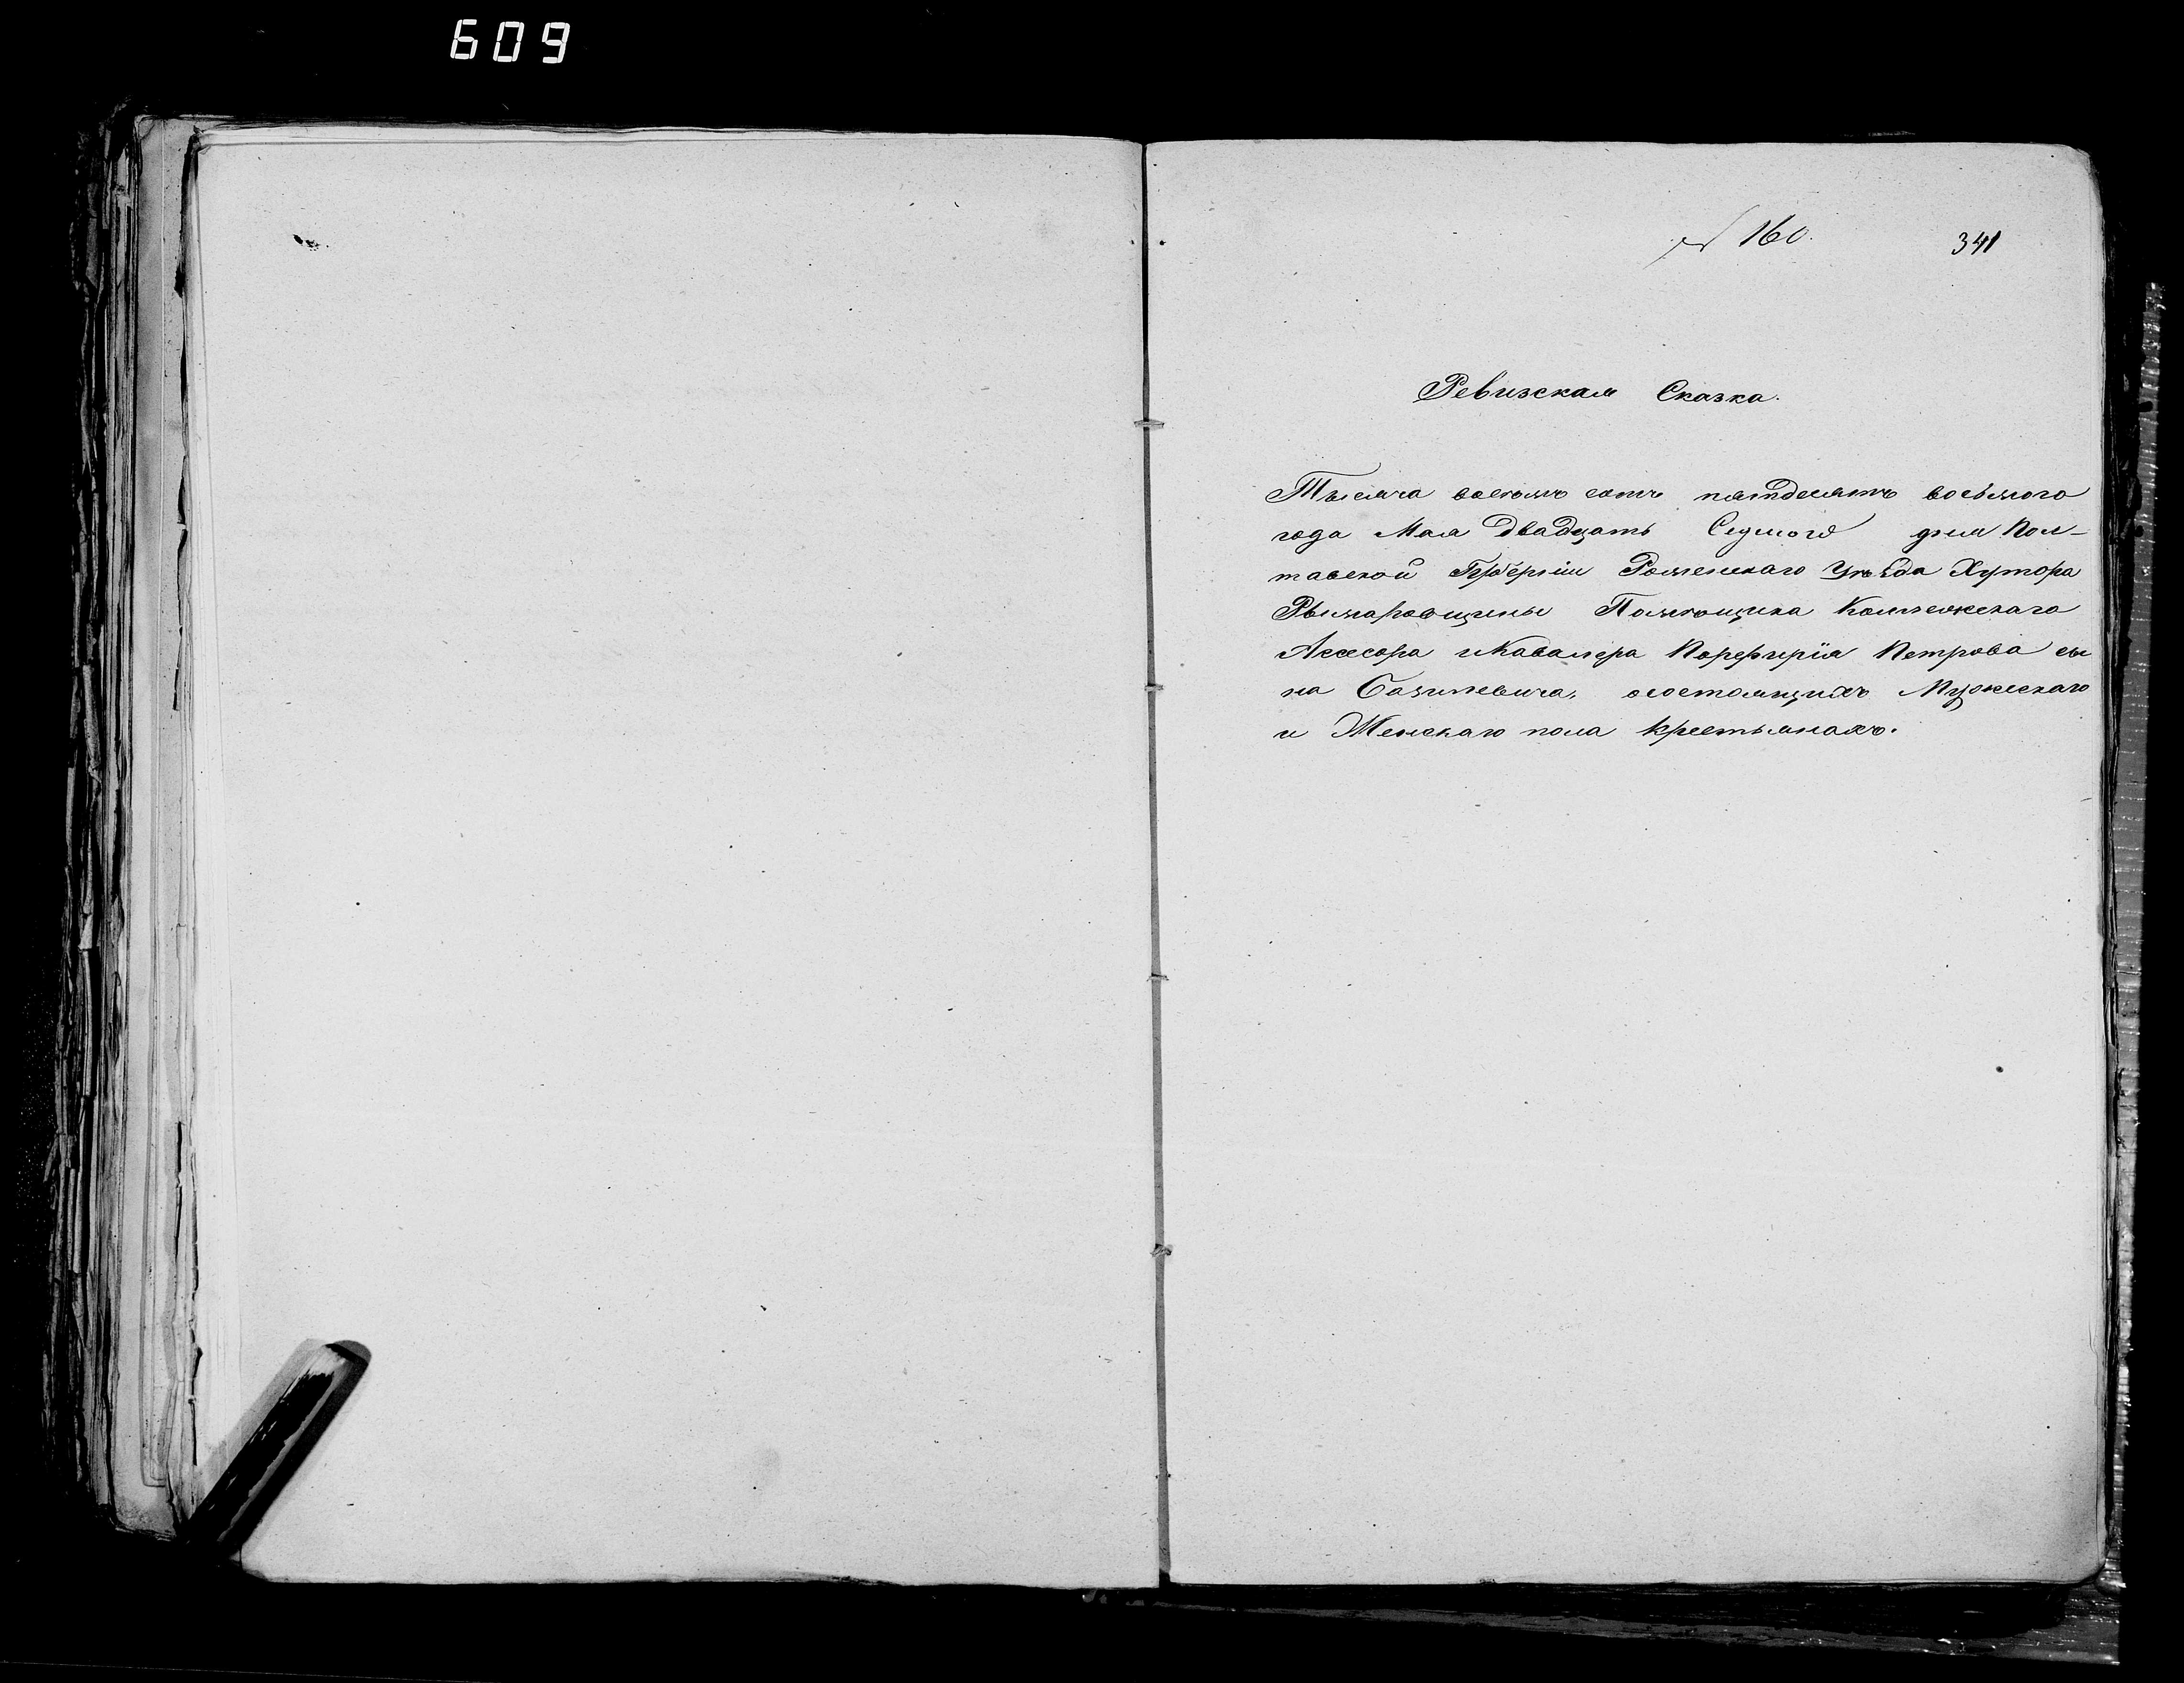 609
№ 160.
341
Ревизская Сказка.
Тысяча восемь сотъ пятдесятъ восьмого
года Мая двадцать Седмого дня Пол-
тавской Губерніи Роменскаго Уѣзда Хутора
Рымаровщины Помѣщика Колежскаго
Асессора и Кавалера Порфирія Петрова сы
на Базилевича, осостоящихъ Мужескаго
и Женскаго пола крестьянахъ.